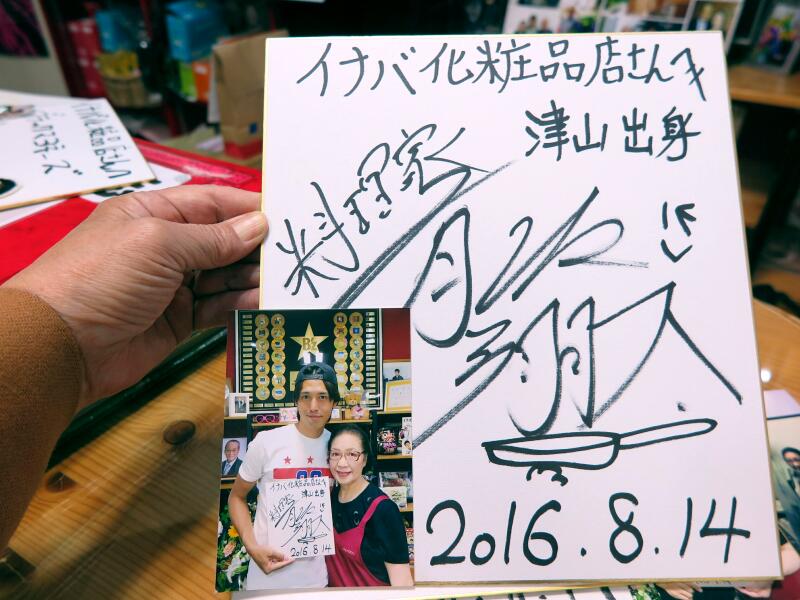 イナバ化粧品店さんへ
津山出身
料理家
翔人
2016.8.14
B'z
イナバ化粧品店さんへ
津山出身
料理家
翔人
2016.8.14